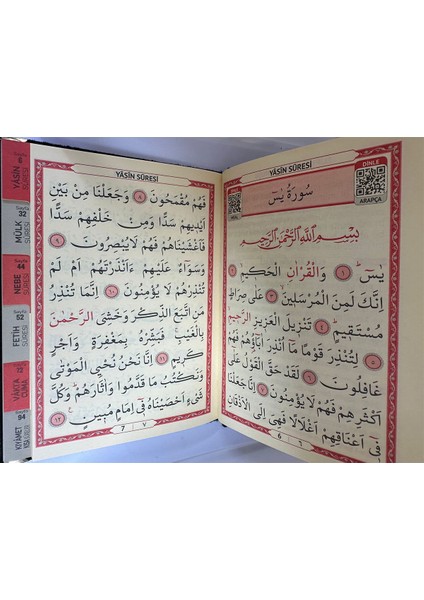 YÂSİN SÛRESİ
DİNLE
ARAPÇA
سُورَةُ يٰسٓ
بِسْمِ اللّٰهِ الرَّحْمٰنِ الرَّحِيمِ
يٰسٓ ﴿١﴾ وَالْقُرْاٰنِ الْحَكِيمِ ﴿٢﴾
اِنَّكَ لَمِنَ الْمُرْسَلِينَ ﴿٣﴾ عَلٰى صِرَاطٍ
مُسْتَقِيمٍ ﴿٤﴾ تَنْزِيلَ الْعَزِيزِ الرَّحِيمِ
﴿٥﴾ لِتُنْذِرَ قَوْمًا مَٓا اُنْذِرَ اٰبَٓاؤُهُمْ فَهُمْ
غَافِلُونَ ﴿٦﴾ لَقَدْ حَقَّ الْقَوْلُ عَلٰٓى
اَكْثَرِهِمْ فَهُمْ لَا يُؤْمِنُونَ ﴿٧﴾ اِنَّا جَعَلْنَا
فِٓى اَعْنَاقِهِمْ اَغْلَالًا فَهِىَ اِلَى الْاَذْقَانِ
6 ٦
YÂSİN SÛRESİ
فَهُمْ مُقْمَحُونَ ﴿٨﴾ وَجَعَلْنَا مِنْ بَيْنِ
اَيْدِيهِمْ سَدًّا وَمِنْ خَلْفِهِمْ سَدًّا
فَاَغْشَيْنَاهُمْ فَهُمْ لَا يُبْصِرُونَ ﴿٩﴾
وَسَوَٓاءٌ عَلَيْهِمْ ءَاَنْذَرْتَهُمْ اَمْ لَمْ
تُنْذِرْهُمْ لَا يُؤْمِنُونَ ﴿١٠﴾ اِنَّمَا تُنْذِرُ
مَنِ اتَّبَعَ الذِّكْرَ وَخَشِىَ الرَّحْمٰنَ
بِالْغَيْبِ فَبَشِّرْهُ بِمَغْفِرَةٍ وَاَجْرٍ
كَرِيمٍ ﴿١١﴾ اِنَّا نَحْنُ نُحْيِى الْمَوْتٰى
وَنَكْتُبُ مَا قَدَّمُوا وَاٰثَارَهُمْ وَكُلَّ
شَىْءٍ اَحْصَيْنَاهُ فِٓى اِمَامٍ مُبِينٍ ﴿١٢﴾
7 ٧
Sayfa 6 YÂSİN SÛRESİ
Sayfa 32 MÜLK SÛRESİ
Sayfa 44 NEBE SÛRESİ
Sayfa 52 FETİH SÛRESİ
VÂKIA CUMA
Sayfa 94 KIYÂMET